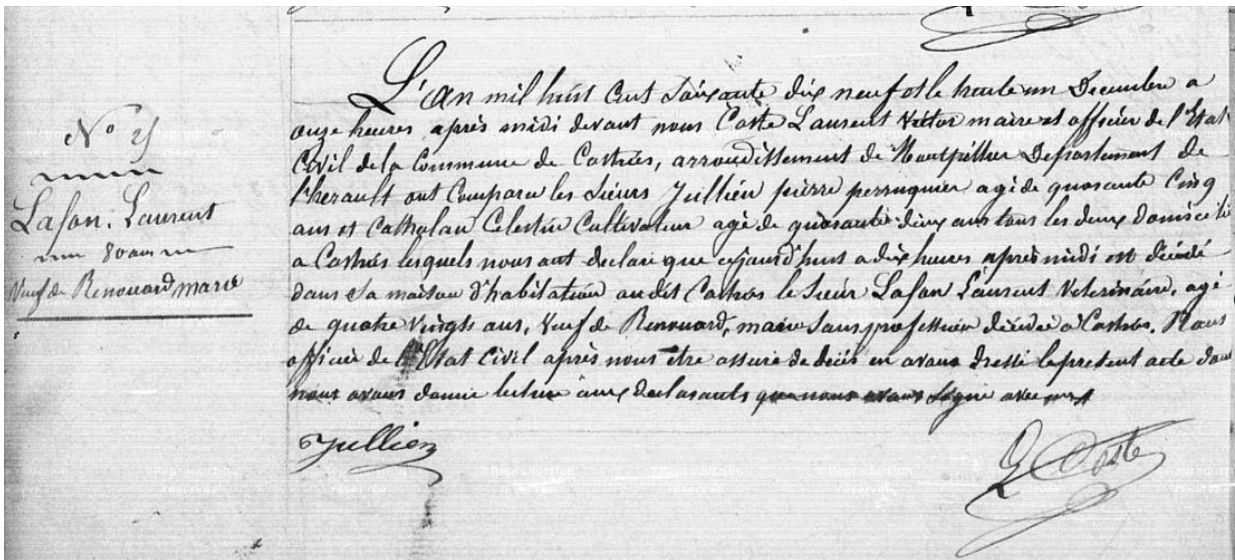 N° 25
Lafon, Laurent
80 ans
Veuf de Renouard marie
L'an mil huit Cent Soixante dix neuf et le trente un Decembre a
onze heures après midi devant nous Coste Laurent Victor maire et officier de l'Etat
Civil de la Commune de Castries, arrondissement de Montpellier Departement de
l'herault ont Comparu les Sieurs Jullien pierre perruquier agé de quarante Cinq
ans et Catholan Celestin Cultivateur agé de quarante deux ans tous les deux domicilié
a Castries lesquels nous ont declaré que aujourd'hui a dix heures après midi est décédé
dans sa maison d'habitation audit Castries le Sieur Lafon Laurent Veterinaire, agé
de quatre Vingts ans, Veuf de Renouard, marie Sans profession décédée a Castries. Nous
officier de l'Etat Civil après nous être assuré du décès en avons dressé le present acte dont
nous avons donné lecture aux declarants que nous avons Signé avec
Jullien
L Coste